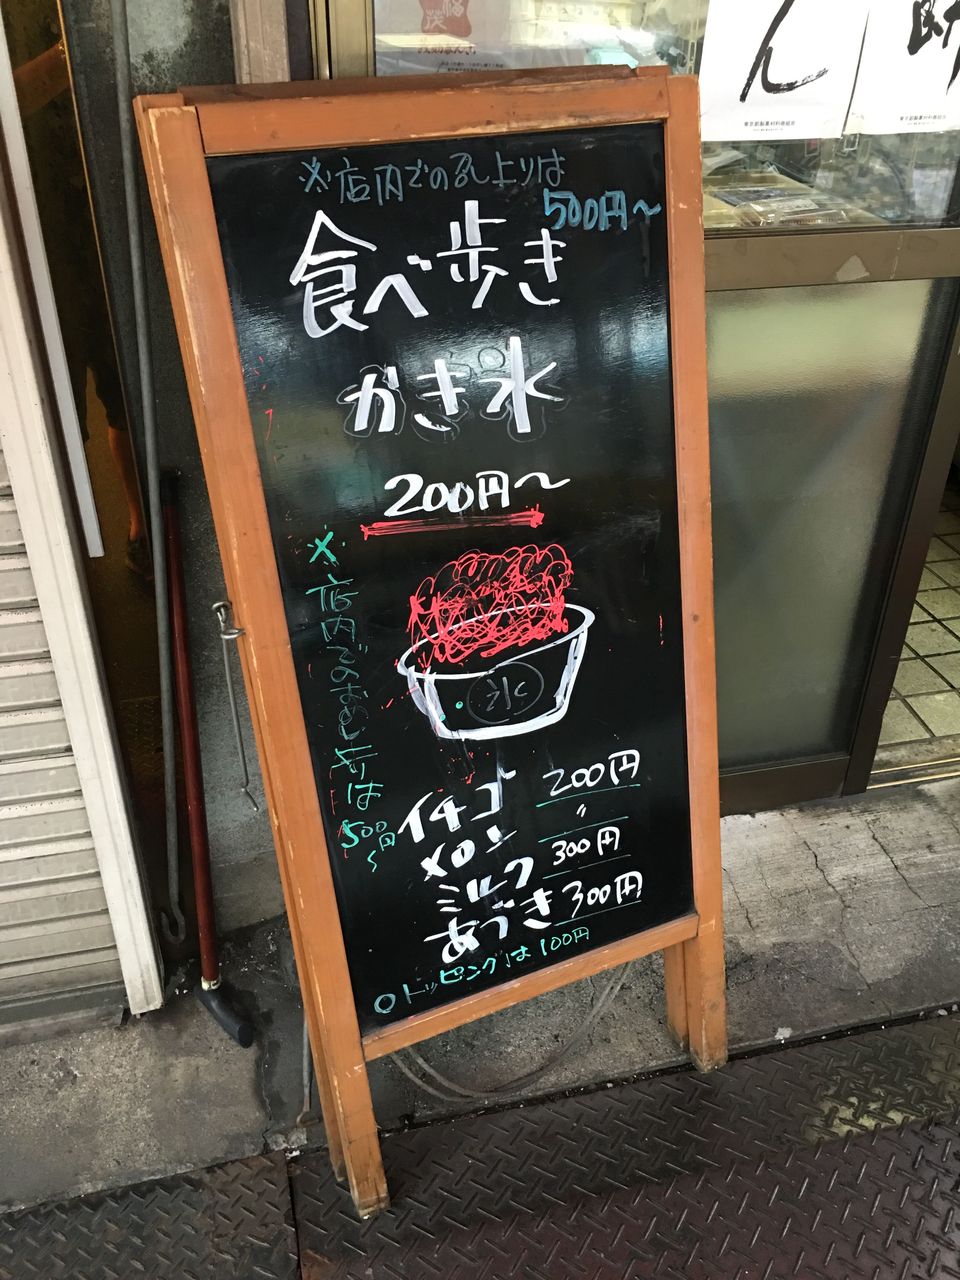 ※店内での召し上りは
500円〜
食べ歩き
かき氷
200円〜
※店内でのお召し上りは
500円〜
氷
イチゴ 200円
メロン 〃
ミルク 300円
あづき 300円
○トッピングは100円
ん
東京都製菓材料商組合